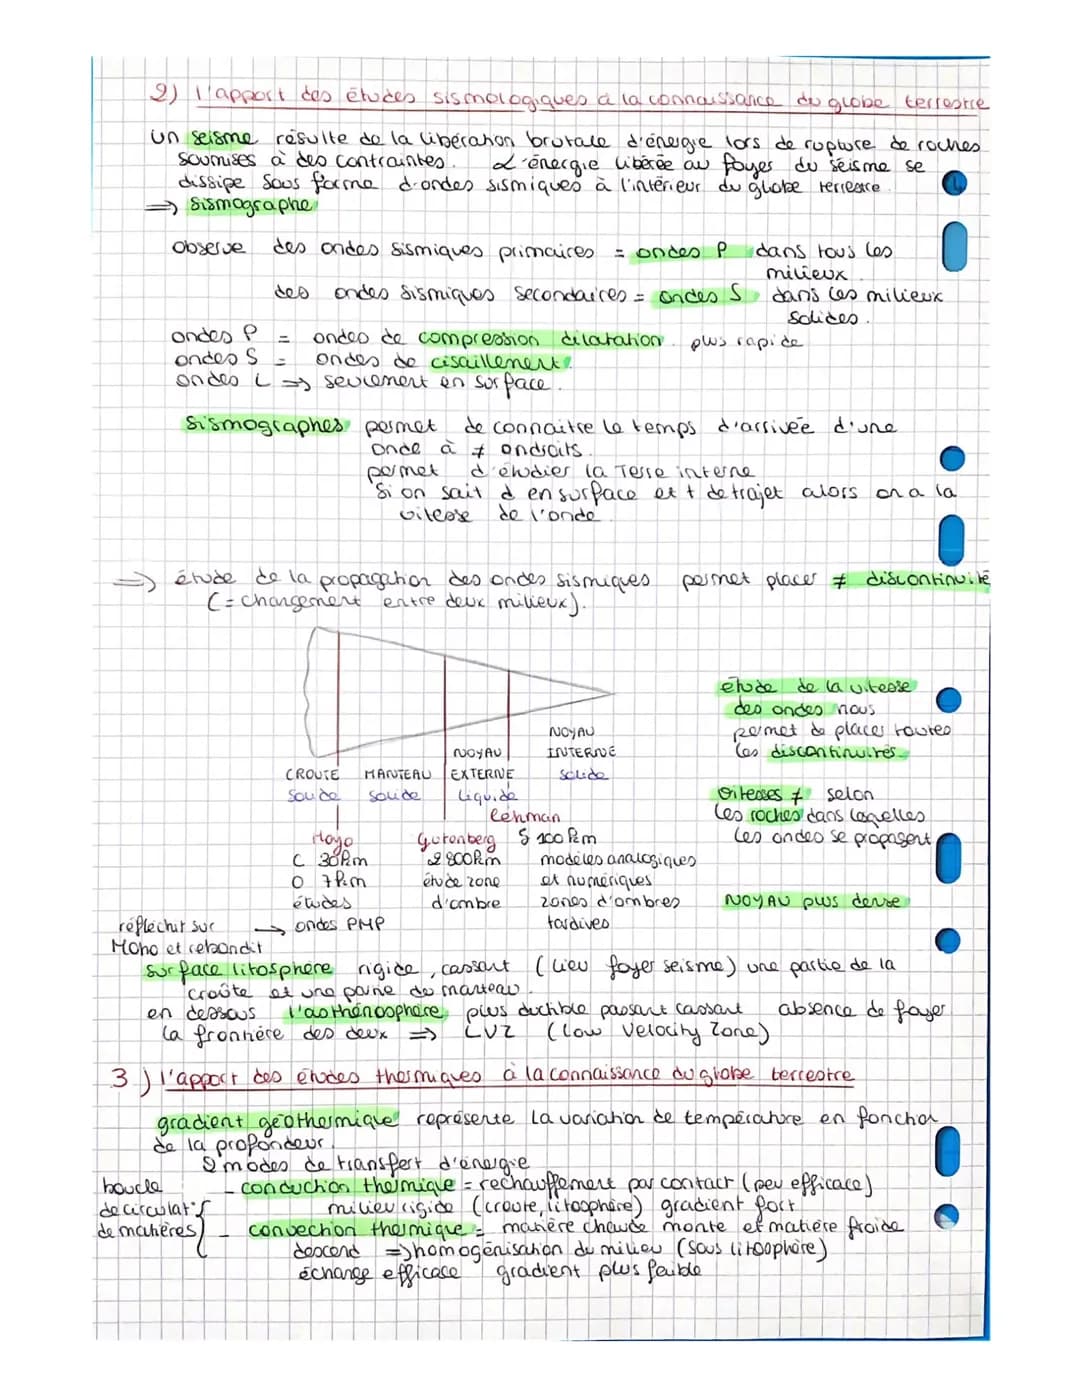 2) l'apport des études sismologiques à la connaissance du globe terrestre
Un seisme résulte de la libération brutale d'énergie lors de rupture de roches
soumises à des contraintes. L'énergie libérée au foyer du séisme se
dissipe sous forme d'ondes sismiques à l'intérieur du globe terrestre.
=> Sismographe
Observe des ondes sismiques primaires = ondes P dans tous les
milieux.
des ondes sismiques secondaires = ondes S dans les milieux
solides.
ondes P = ondes de compression dilatation. plus rapide
ondes S = ondes de cisaillement.
ondes L => seulement en surface.
Sismographes permet de connaitre le temps d'arrivée d'une
onde à ≠ endroits.
permet d'étudier la Terre interne
Si on sait d en surface et t de trajet alors on a la
vitesse de l'onde.
=> étude de la propagation des ondes sismiques permet placer ≠ discontinuité
(= changement entre deux milieux).
étude de la vitesse
des ondes nous
permet de placer toutes
les discontinuités.
NOYAU NOYAU
CROUTE MANTEAU EXTERNE INTERNE
Solide Solide liquide solide
Vitesses ≠ selon
les roches dans lesquelles
les ondes se propagent
Lehman
Moho Gutenberg 5 100 km
C 30km 2 800km modèles analogiques
O 7km étude zone et numériques
études d'ombre zones d'ombres NOYAU plus dense
réfléchit sur -> ondes PMP tardives
Moho et rebondit
surface litosphère rigide, cassant (lieu foyer seisme) une partie de la
croûte et une partie de manteau.
en dessous l'asthénosphère plus ductible passant cassant absence de foyer
la frontière des deux => LVZ (low Velocity Zone)
3) l'apport des études thermiques à la connaissance du globe terrestre
gradient géothermique représente la variation de température en fonction
de la profondeur.
2 modes de transfert d'énergie
boucle - conduction thermique = rechauffement par contact (peu efficace)
de circulat° milieu rigide (croute, litosphère) gradient fort
de matières - convection thermique = matière chaude monte et matière froide
descend => homogénisation du milieu (sous litosphère)
échange efficace gradient plus faible